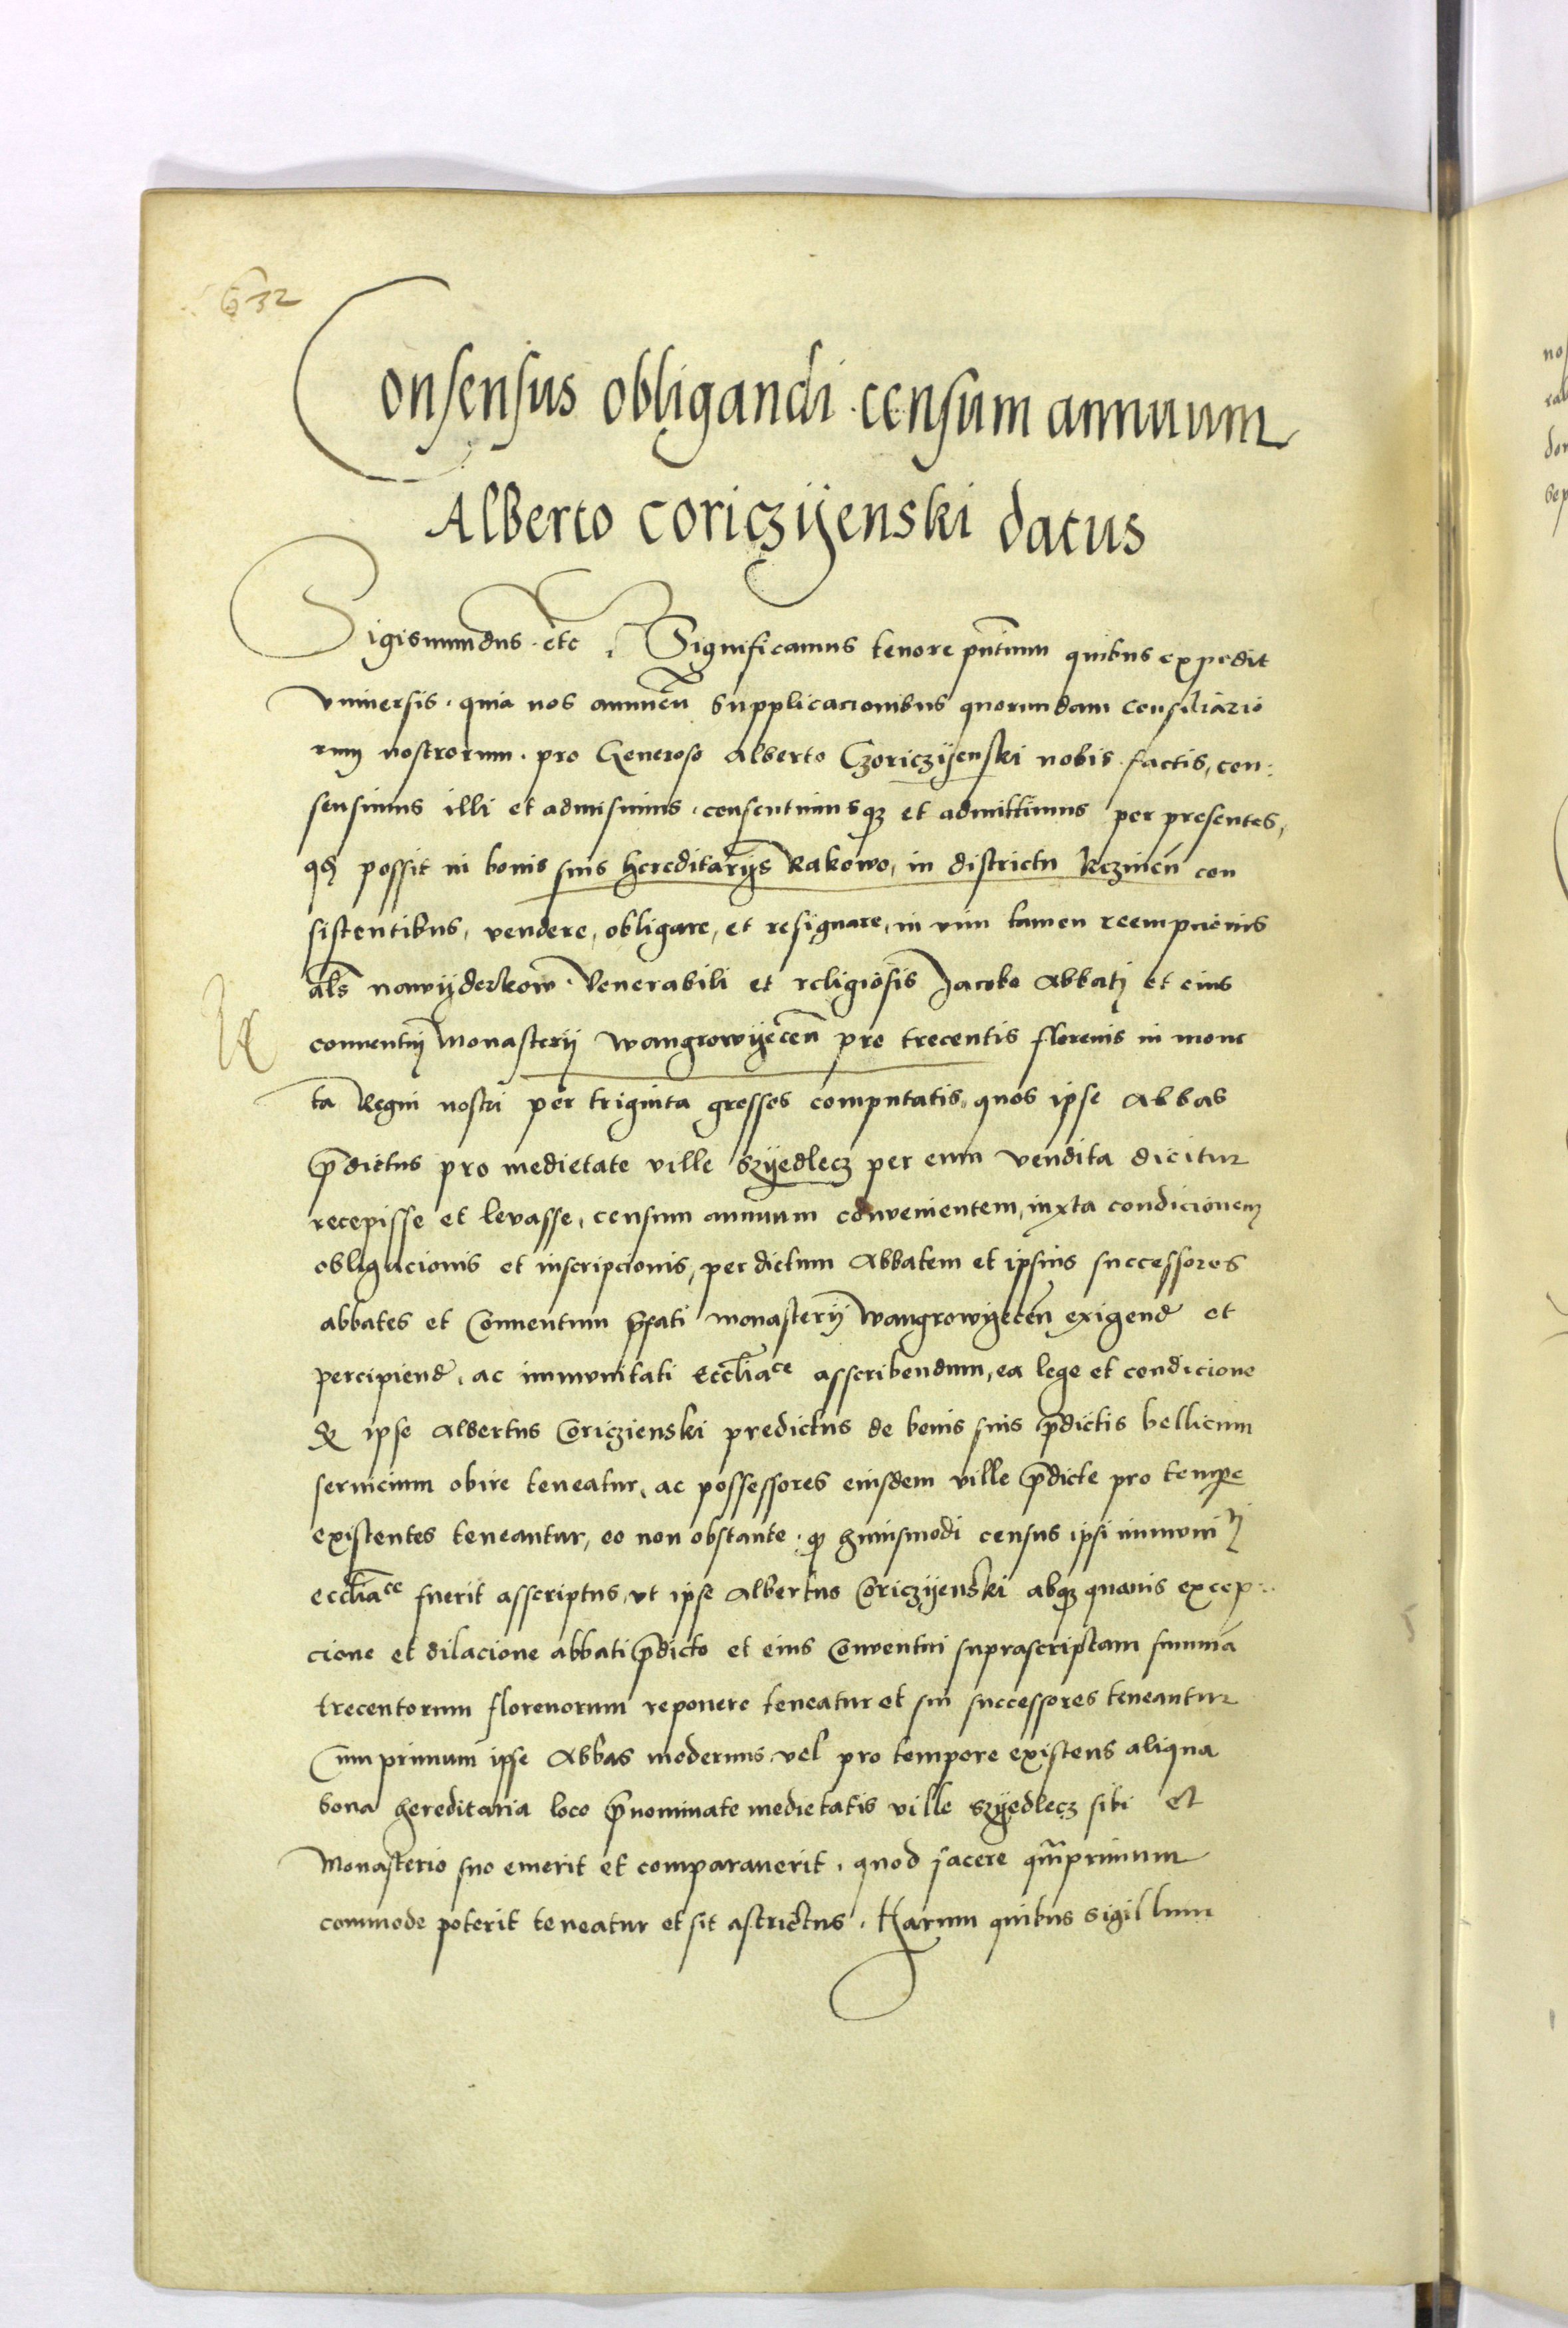 632
Consensus obligandi censum annuum
Alberto Coriczijenski datus
Sigismundus etc. Significamus tenore pñtium quibus expedit
vniuersis. quia nos annueñ supplicacionibus quorundam consiliario
rum nostrorum. pro Generoso Alberto Czoriczijenski nobis factis, con:
sensimus illi et admisimus. consentimusqꝫ et admittimus per presentes,
qđ possit in bonis suis hereditarijs Rakowo, in districtu Kczineñ con
sistentibus, vendere, obligare, et resignare, in vim tamen reempcionis
als̃ nawyderkow. Venerabili et religiosis Jacobo Abbatj et eius
conuentuj Monasterij Wangrowijeceñ pro trecentis florenis in mone
ta Regni nostri per triginta grosses computatis, quos ipse Abbas
p̃dictus pro medietate ville Szyedlecz per eum vendita dicitur
recepisse et levasse, censum annuum convenientem, iuxta condicionem
obligacionis et inscripcionis, per dictum Abbatem et ipsius successores
abbates et Conuentum p̃fati monasterij Wangrowijeceñ exigend̃ et
percipiend̃, ac immunitati eccl̃iace asscribendum, ea lege et condicione
qꝫ ipse Albertus Coriczienski predictus de bonis suis p̃dictis bellicum
seruicium obire teneatur, ac possessores eiusdem ville p̃dicte pro tempe
existentes teneantur, eo non obstante. qꝫ huiusmodi census ipsi immunitj
eccl̃iace fuerit asscriptus, vt ipse Albertus Coriczijenski absqꝫ quauis excep:
cione et dilacione abbati p̃dicto et eius Conventui suprascriptam summã
trecentorum florenorum reponere teneatur et sui successores teneantur
Cum primum ipse Abbas modernus vel pro tempore existens aliqua
bona hereditaria loco p̃nominate medietatis ville Szyedlecz sibi et
Monasterio suo emerit et comparauerit. quod facere qm̃primum
commode poterit teneatur et sit astrictus. Harum quibus sigillum